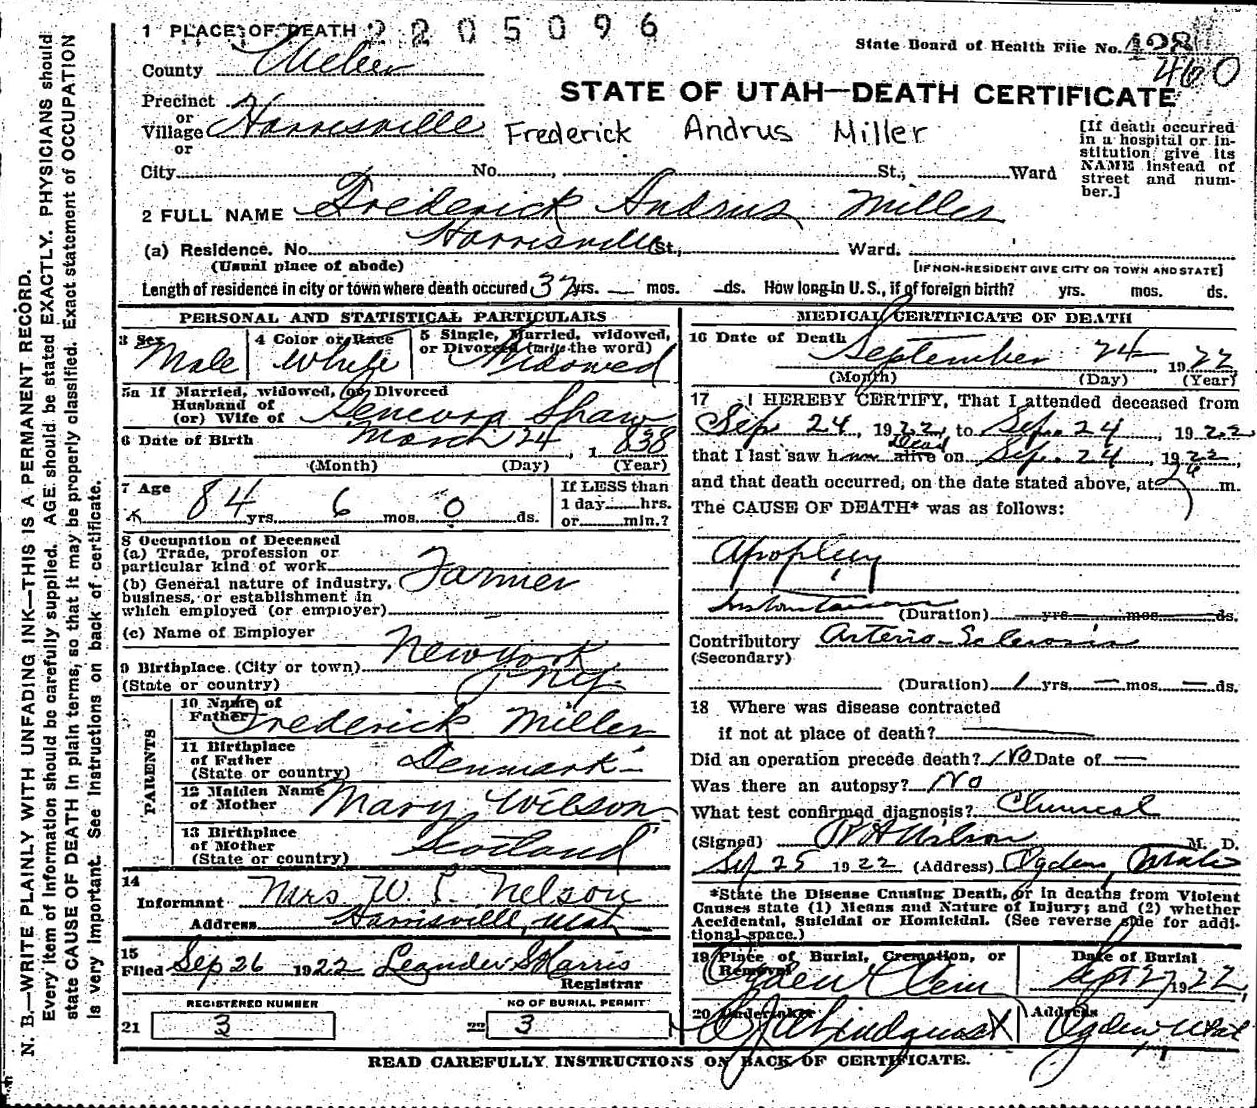 1 PLACE OF DEATH 2205096
State Board of Health File No. 198
460
County Weber
STATE OF UTAH—DEATH CERTIFICATE
Precinct
or
Village Harrisville
or
Frederick Andrus Miller
[If death occurred in a hospital or institution give its NAME instead of street and number.]
City No. , St., Ward
2 FULL NAME Frederick Andrus Miller
(a) Residence. No. Harrisville St., Ward.
(Usual place of abode)
[IF NON-RESIDENT GIVE CITY OR TOWN AND STATE]
Length of residence in city or town where death occured 32 yrs. — mos. — ds. How long in U. S., if of foreign birth? yrs. mos. ds.
PERSONAL AND STATISTICAL PARTICULARS
3 Sex Male
4 Color or Race White
5 Single, Married, widowed, or Divorced (write the word) Widowed
5a If Married, widowed, or Divorced
Husband of
(or) Wife of Genevora Shaw
6 Date of Birth March 24, 1838
(Month) (Day) (Year)
7 Age 84 yrs. 6 mos. 0 ds.
If LESS than
1 day hrs.
or min.?
8 Occupation of Deceased
(a) Trade, profession or
particular kind of work Farmer
(b) General nature of industry,
business, or establishment in
which employed (or employer)
(c) Name of Employer
9 Birthplace (City or town) New York
(State or country) N.Y.
PARENTS
10 Name of
Father Frederick Miller
11 Birthplace
of Father
(State or country) Denmark
12 Maiden Name
of Mother Mary Wilson
13 Birthplace
of Mother
(State or country) Scotland
14
Informant Mrs W. Nelson
Address Harrisville, Utah
15
Filed Sep 26 1922 Leander S Harris
Registrar
REGISTERED NUMBER
NO OF BURIAL PERMIT
21 3
22 3
MEDICAL CERTIFICATE OF DEATH
16 Date of Death September 24 1922
(Month) (Day) (Year)
17 I HEREBY CERTIFY, That I attended deceased from
Sep. 24, 1922, to Sep. 24, 1922,
that I last saw him alive Dead on Sep. 24, 1922,
and that death occurred, on the date stated above, at m.
The CAUSE OF DEATH* was as follows:
Apoplexy
Instantaneous (Duration) yrs. mos. ds.
Contributory Arterio-Sclerosis
(Secondary)
(Duration) 1 yrs. — mos. — ds.
18 Where was disease contracted
if not at place of death?
Did an operation precede death? No Date of —
Was there an autopsy? No
What test confirmed diagnosis? Clinical
(Signed) Wilson M. D.
Sep 25 1922 (Address) Ogden, Utah
*State the Disease Causing Death, or in deaths from Violent
Causes state (1) Means and Nature of Injury; and (2) whether
Accidental, Suicidal or Homicidal. (See reverse side for addi-
tional space.)
19 Place of Burial, Cremation, or
Removal Ogden Cem
Date of Burial
Sept 27 1922
20 Undertaker Lindquist
Address Ogden Utah
READ CAREFULLY INSTRUCTIONS ON BACK OF CERTIFICATE.
N. B.—WRITE PLAINLY WITH UNFADING INK—THIS IS A PERMANENT RECORD.
Every item of information should be carefully supplied. AGE should be stated EXACTLY. PHYSICIANS should
state CAUSE OF DEATH in plain terms, so that it may be properly classified. Exact statement of OCCUPATION
is very important. See instructions on back of certificate.